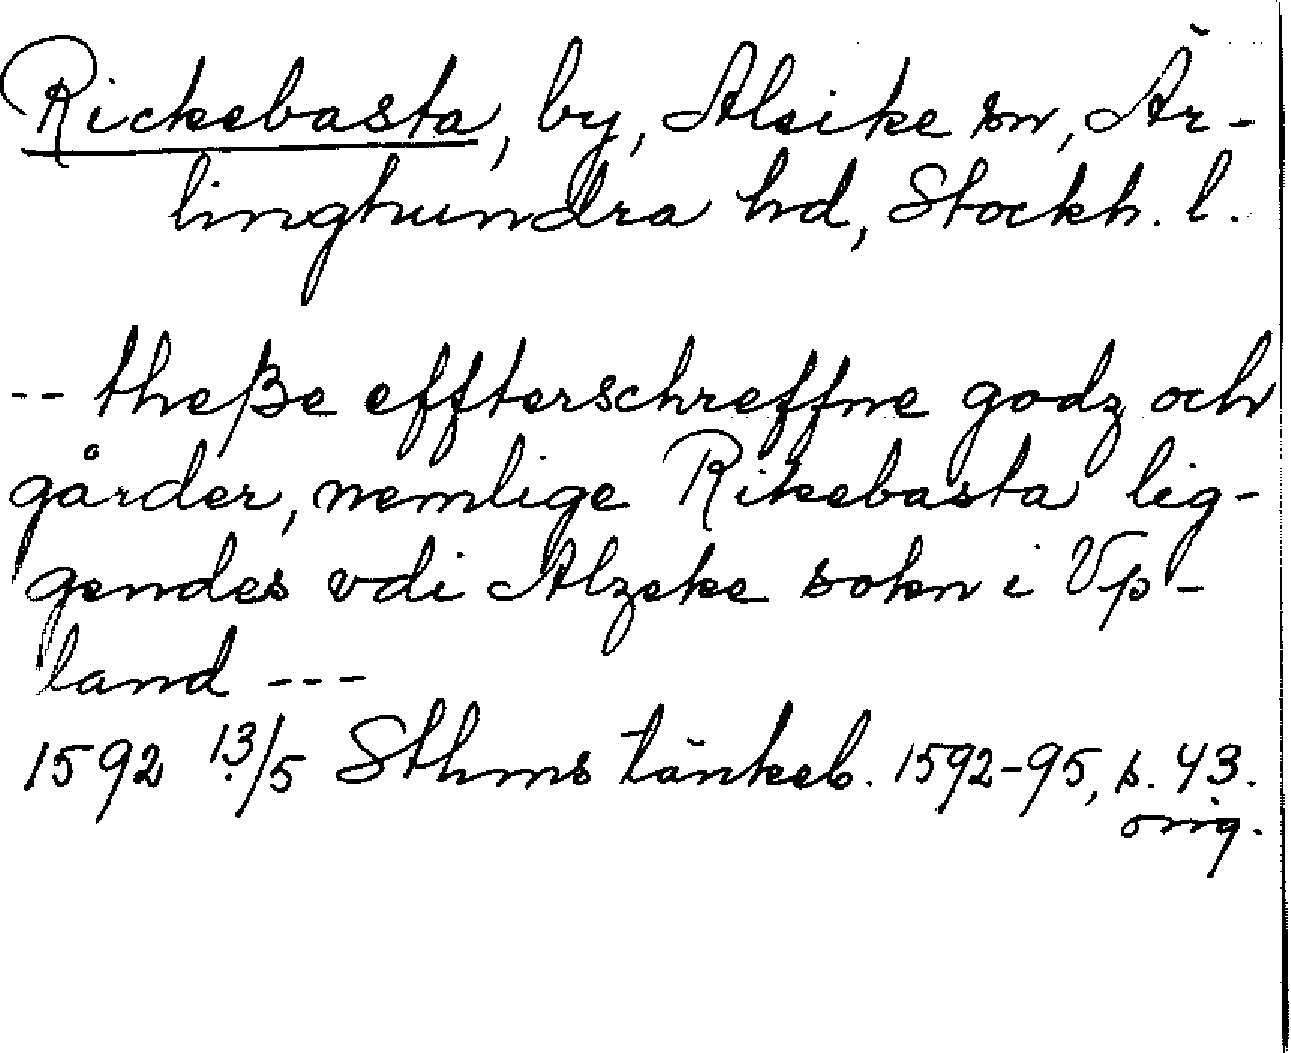 Rickebasta, by, Alsike sn, Är-
linghundra hd, Stockh. l.
-- theße effterschreffne godz och
gårder, nemlige Rikebasta lig-
gendes vdi Alzeke sokn i Vp-
land ---
1592 13/5 Sthms tänkeb. 1592-95, s. 43.
orig.